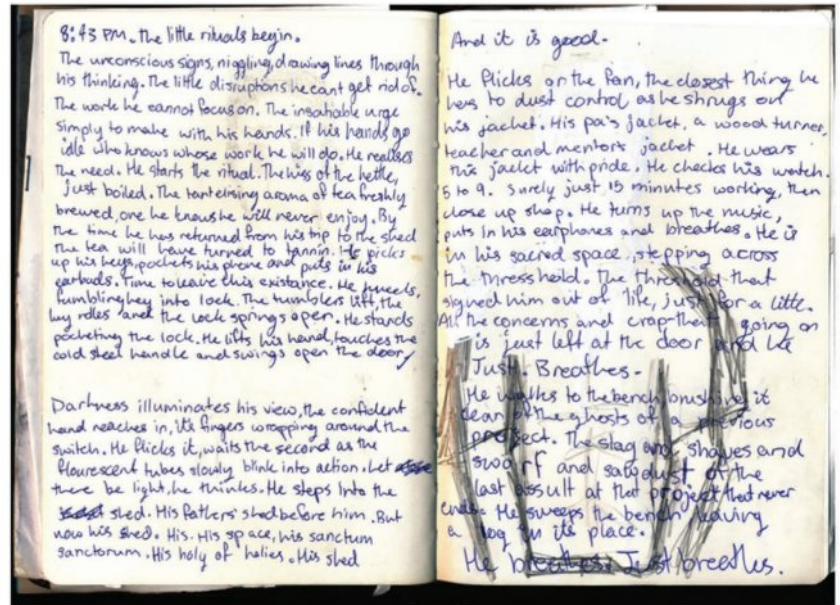 8:43 PM. The little rituals begin.
The unconscious signs, niggling, drawing lines through
his thinking. The little disruptions he cant get rid of.
The work he cannot focus on. The insatiable urge
simply to make with his hands. If his hands go
idle who knows whose work he will do. He realises
the need. He starts the ritual. The hiss of the kettle,
just boiled. The tantelising aroma of tea freshly
brewed, one he knows he will never enjoy. By
the time he has returned from his trip to the shed
the tea will have turned to tannin. He picks
up his keys, pockets his phone and puts in his
earbuds. Time to leave this existance. He kneels,
fumbling key into lock. The tumblers lift, the
key and the lock springs open. He stands
pocketing the lock. He lifts his hand, touches the
cold steel handle and swings open the door,
Darkness illuminates his view, the confident
hand reaches in, it's fingers wrapping around the
switch. He flicks it, waits the second as the
flourescent tubes slowly blink into action. Let
there be light, he thinks. He steps into the
shed. His fathers shed before him. But
now his shed. His. His space, his sanctum
sanctorum. His holy of holies. His shed
And it is good.
He flicks on the fan, the closest thing he
has to dust control as he shrugs on
his jacket. His pa's jacket, a wood turner,
teacher and mentors jacket. He wears
this jacket with pride. He checks his watch.
5 to 9. Surely just 15 minutes working, then
close up shop. He turns up the music,
puts in his earphones and breathes. He is
in his sacred space, stepping across
the threshold. The threshold that
signed him out of life, just for a little.
All the concerns and crap that going on
is just left at the door and he
Just. Breathes.
He walks to the bench, brushing it
clean of the ghosts of a previous
project. The slag and shaves and
swarf and sawdust of the
last assult at that project that never
ends. He sweeps the bench leaving
a log in its place.
He breathes. Just breathes.